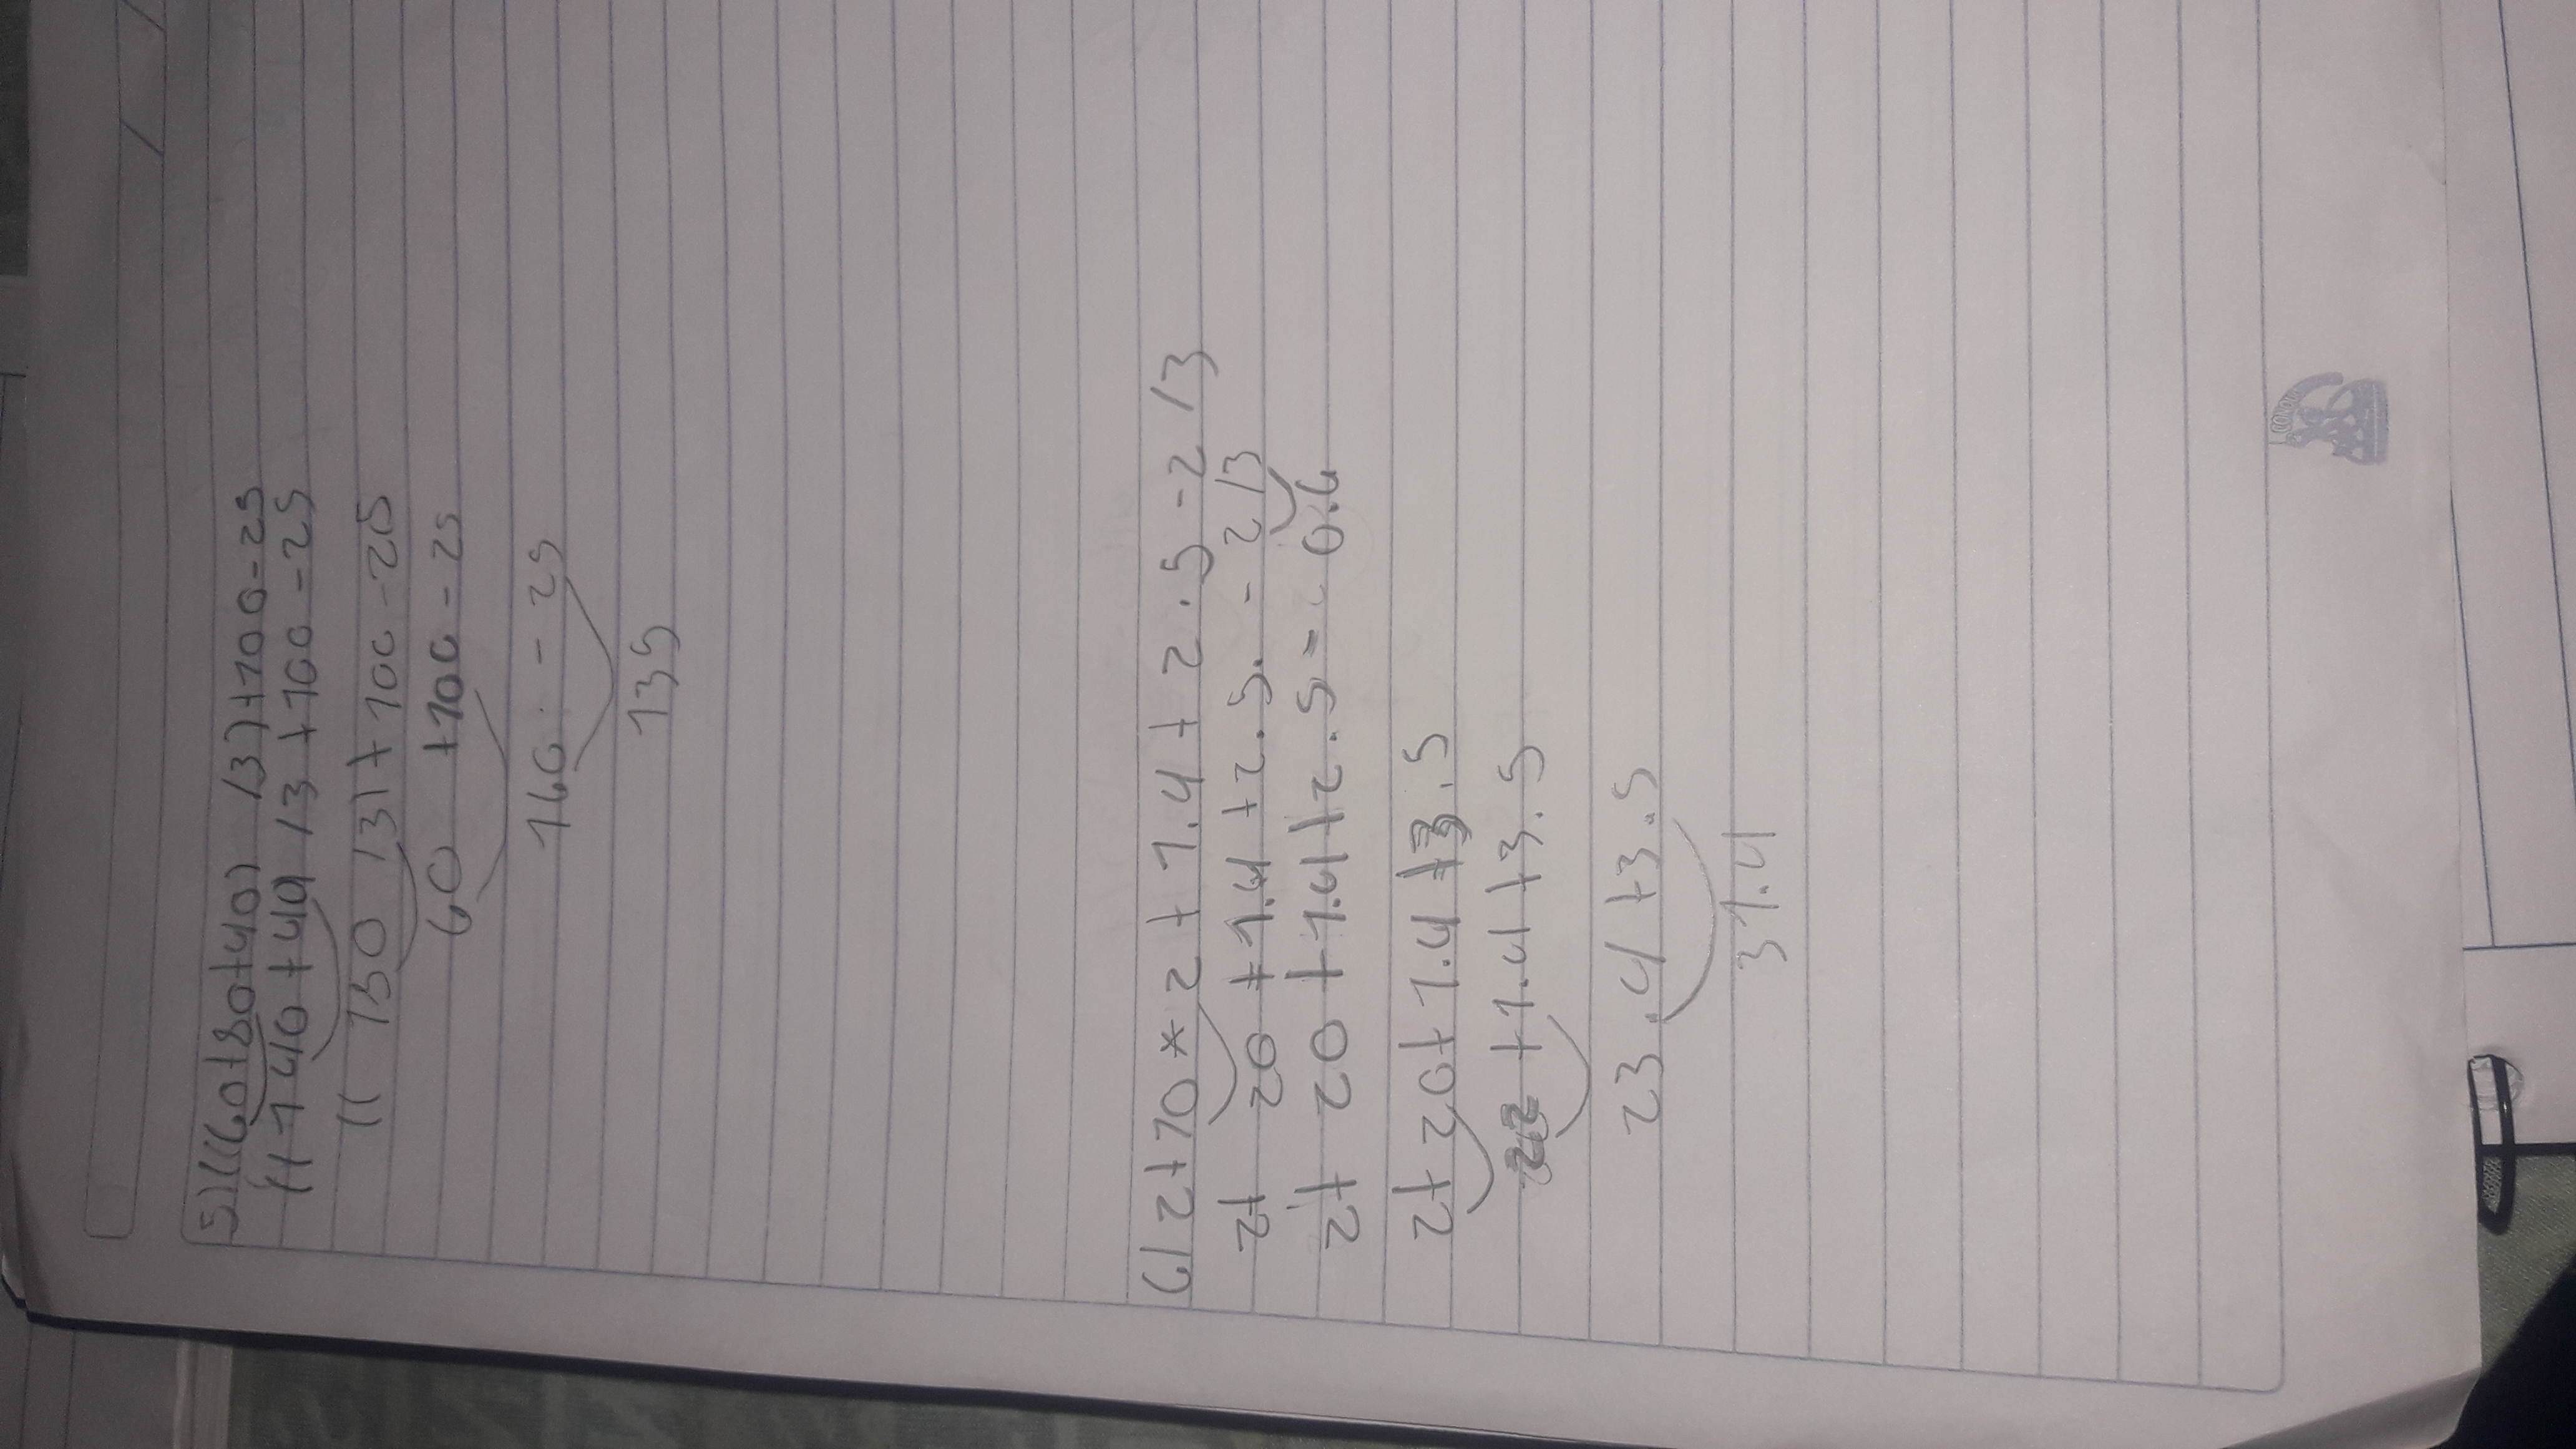 5)(((60+80+40) /3)+100-25
((140+40) /3+100-25
(( 130 /3)+100-25
60 +100-25
160 - 25
135
6) 2+10*2+1.4+2.5-2/3
2+ 20 +1.4 +2.5.- 2/3
2+ 20 +1.4+2.5- 0.6
2+20+1.4+3.5
22 +1.4+3.5
23.4+3.5
31.4
CONDO